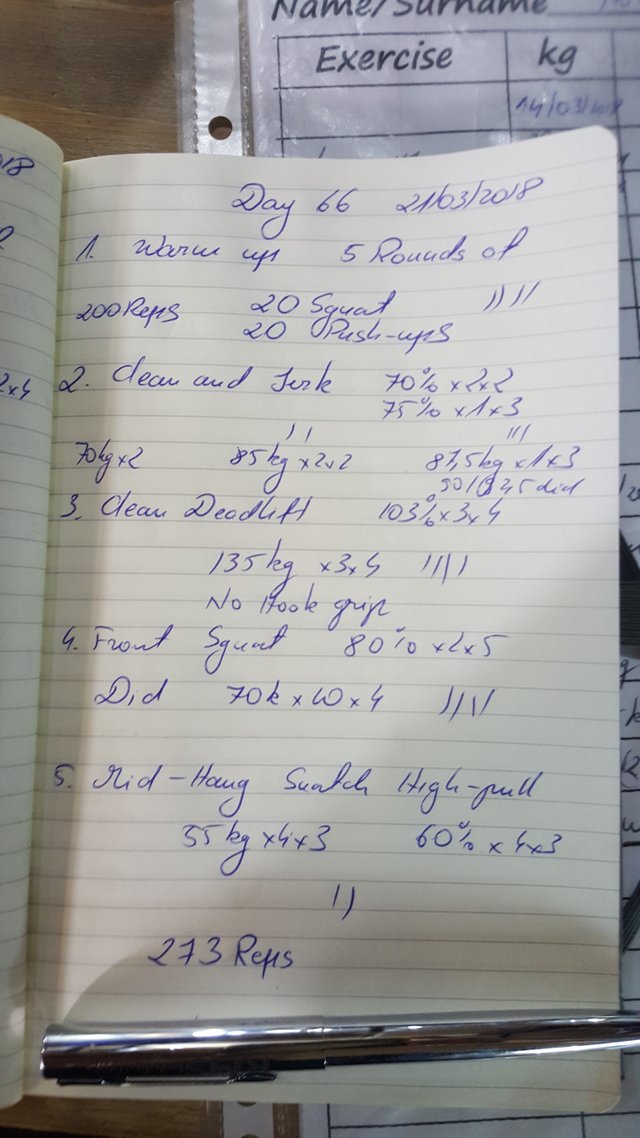 Name/Surname
Exercise kg
14/03/2018
Day 66 21/03/2018
1. Warm up 5 Rounds of
200 Reps 20 Squat ////
20 Push-ups
2. Clean and Jerk 70% x2x2
75% x1x3
// ///
70kg x2 85kg x2x2 87,5kg x1x3
did
3. Clean Deadlift 103% x3x4
135kg x3x4 ////
No Hook grip
4. Front Squat 80% x2x5
Did 70k x10x4 ////
5. Mid-Hang Snatch High-pull
55kg x4x3 60% x4x3
//
273 Reps
18
2x4